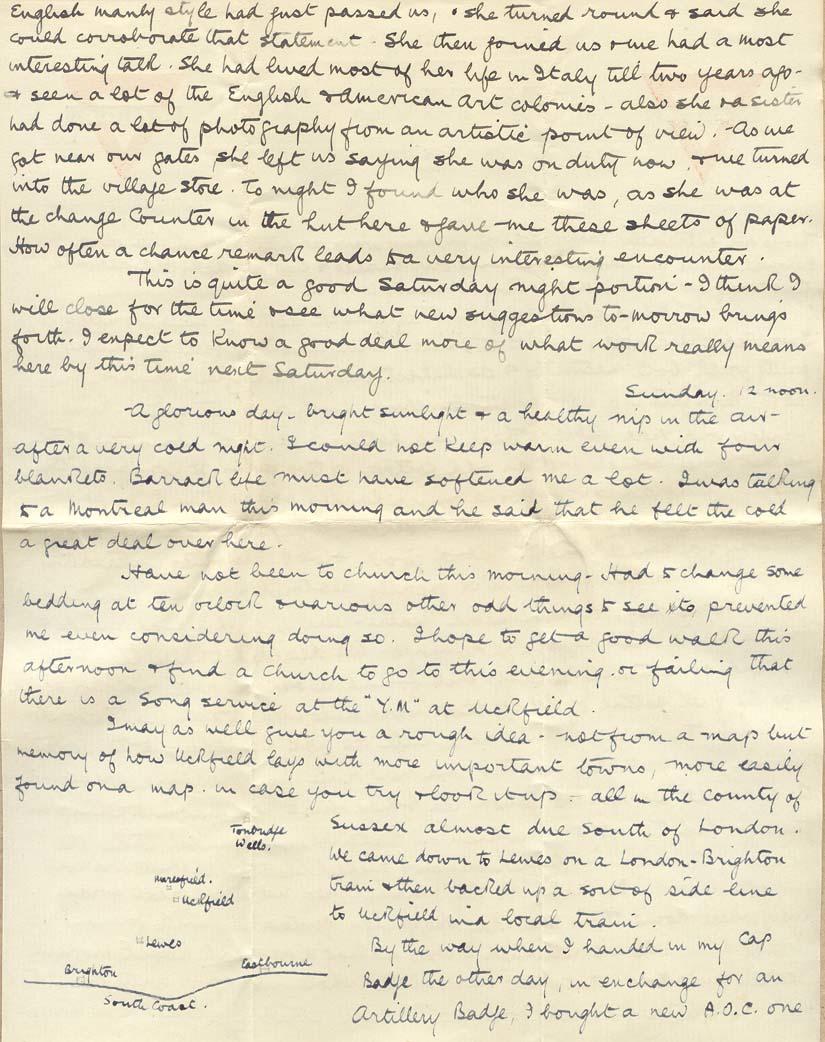 English manly style had just passed us, she turned round & said she
could corroborate that statement. She then joined us & we had a most
interesting talk. She had lived most of her life in Italy till two years ago -
& seen a lot of the English & American Art colonies - also she & a sister
had done a lot of photography from an artistic point of view. As we
got near our gates she left us saying she was on duty now. & we turned
into the village store. To night I found who she was, as she was at
the change Counter in the hut here & gave me these sheets of paper.
How often a chance remark leads to a very interesting encounter.
This is quite a good Saturday night portion - I think I
will close for the time & see what new suggestions to-morrow brings
forth. I expect to Know a good deal more of what work really means
here by this time next Saturday.
Sunday. 12 noon.
A glorious day - bright sunlight & a healthy nip in the air -
after a very cold night. I could not Keep warm even with four
blankets. Barrack life must have softened me a lot. I was talking
to a Montreal man this morning and he said that he felt the cold
a great deal over here.
Have not been to church this morning - Had to change some
bedding at ten oclock & various other odd things to see to, prevented
me even considering doing so. I hope to get a good walk this
afternoon & find a Church to go to this evening. or failing that
there is a Song service at the "Y.M" at Uckfield.
I may as well give you a rough idea - not from a map but
memory of how Uckfield lays with more important towns, more easily
found on a map. in case you try & look it up. - all in the county of
Sussex almost due South of London.
We came down to Lewes on a London-Brighton
train & then backed up a sort of side line
to Uckfield in a local train.
By the way when I handed in my Cap
Badge the other day, in exchange for an
Artillery Badge, I bought a new A.O.C. one
Tonbridge
Wells.
Maresfield.
Uckfield
Lewes
Brighton
Eastbourne
South Coast.